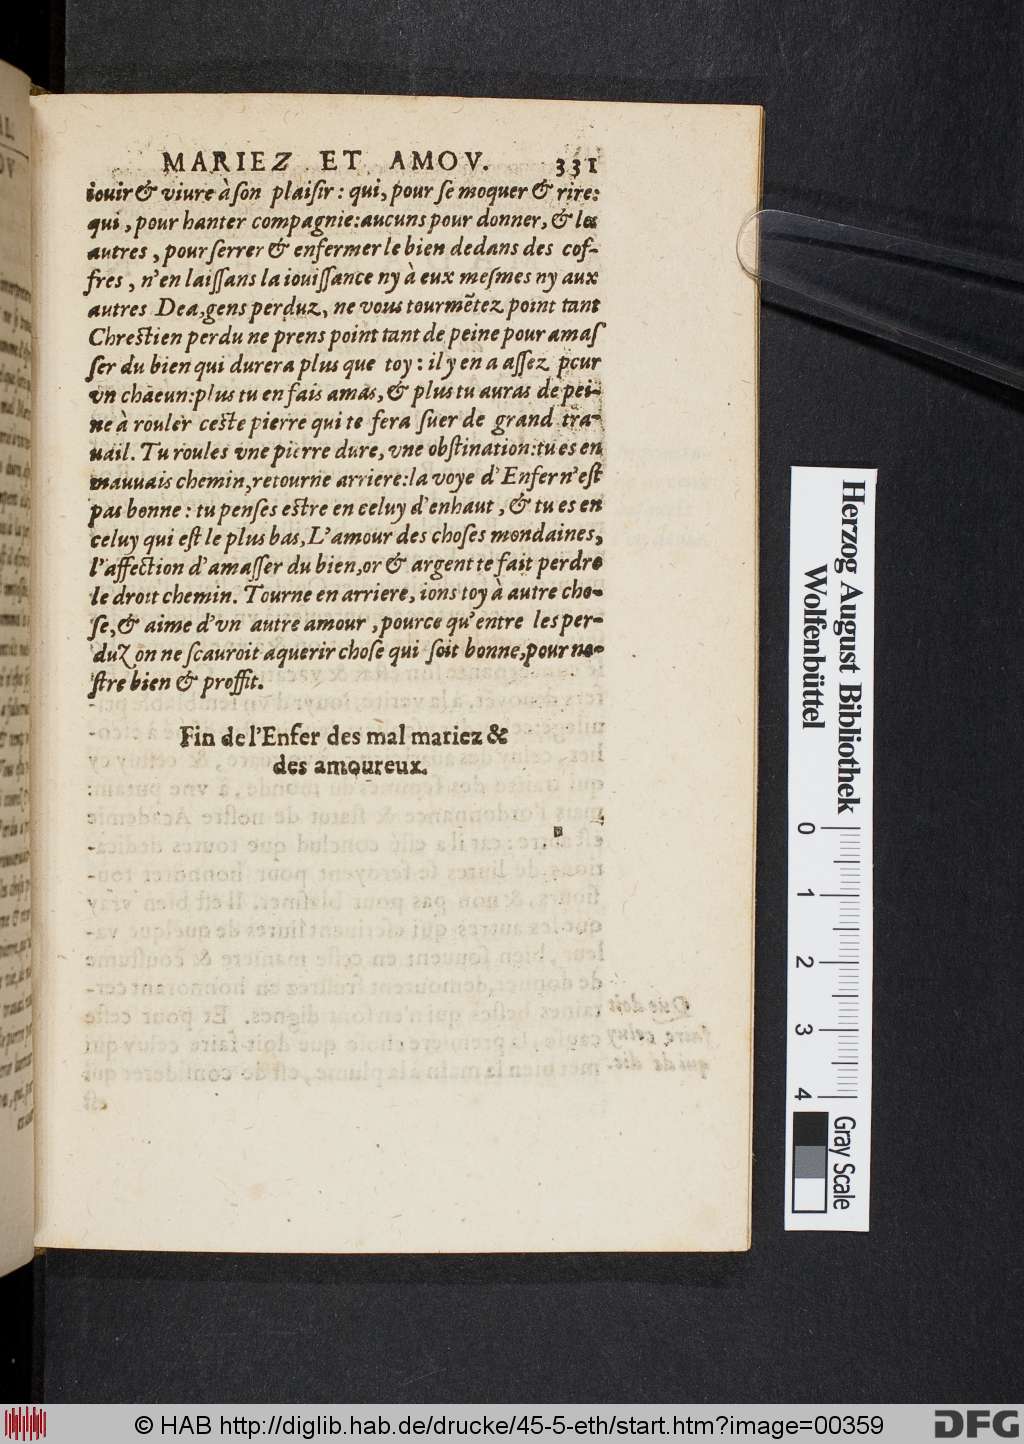 MARIEZ ET AMOV. 331
iouir & viure à ſon plaiſir : qui, pour ſe moquer & rire:
qui, pour hanter compagnie: aucuns pour donner, & les
autres, pour ſerrer & enfermer le bien dedans des cof-
fres, n'en laiſſans la iouiſſance ny à eux meſmes ny aux
autres Dea, gens perduz, ne vous tourmẽtez point tant
Chreſtien perdu ne prens point tant de peine pour amaſ
ſer du bien qui durera plus que toy : il y en a aſſez pour
vn chaeun: plus tu en fais amas, & plus tu auras de pei-
ne à rouler ceſte pierre qui te fera ſuer de grand tra-
uail. Tu roules vne pierre dure, vne obſtination: tu es en
mauuais chemin, retourne arriere: la voye d'Enfer n'eſt
pas bonne : tu penſes eſtre en celuy d'enhaut, & tu es en
celuy qui eſt le plus bas, L'amour des choſes mondaines,
l'affection d'amaſſer du bien, or & argent te fait perdre
le droit chemin. Tourne en arriere, ions toy à autre cho-
ſe, & aime d'vn autre amour, pource qu'entre les per-
duz on ne ſcauroit aquerir choſe qui ſoit bonne, pour no-
ſtre bien & proffit.
Fin de l'Enfer des mal mariez &
des amoureux.
Herzog August Bibliothek
Wolfenbüttel
0 1 2 3 4
Gray Scale
© HAB http://diglib.hab.de/drucke/45-5-eth/start.htm?image=00359
DFG